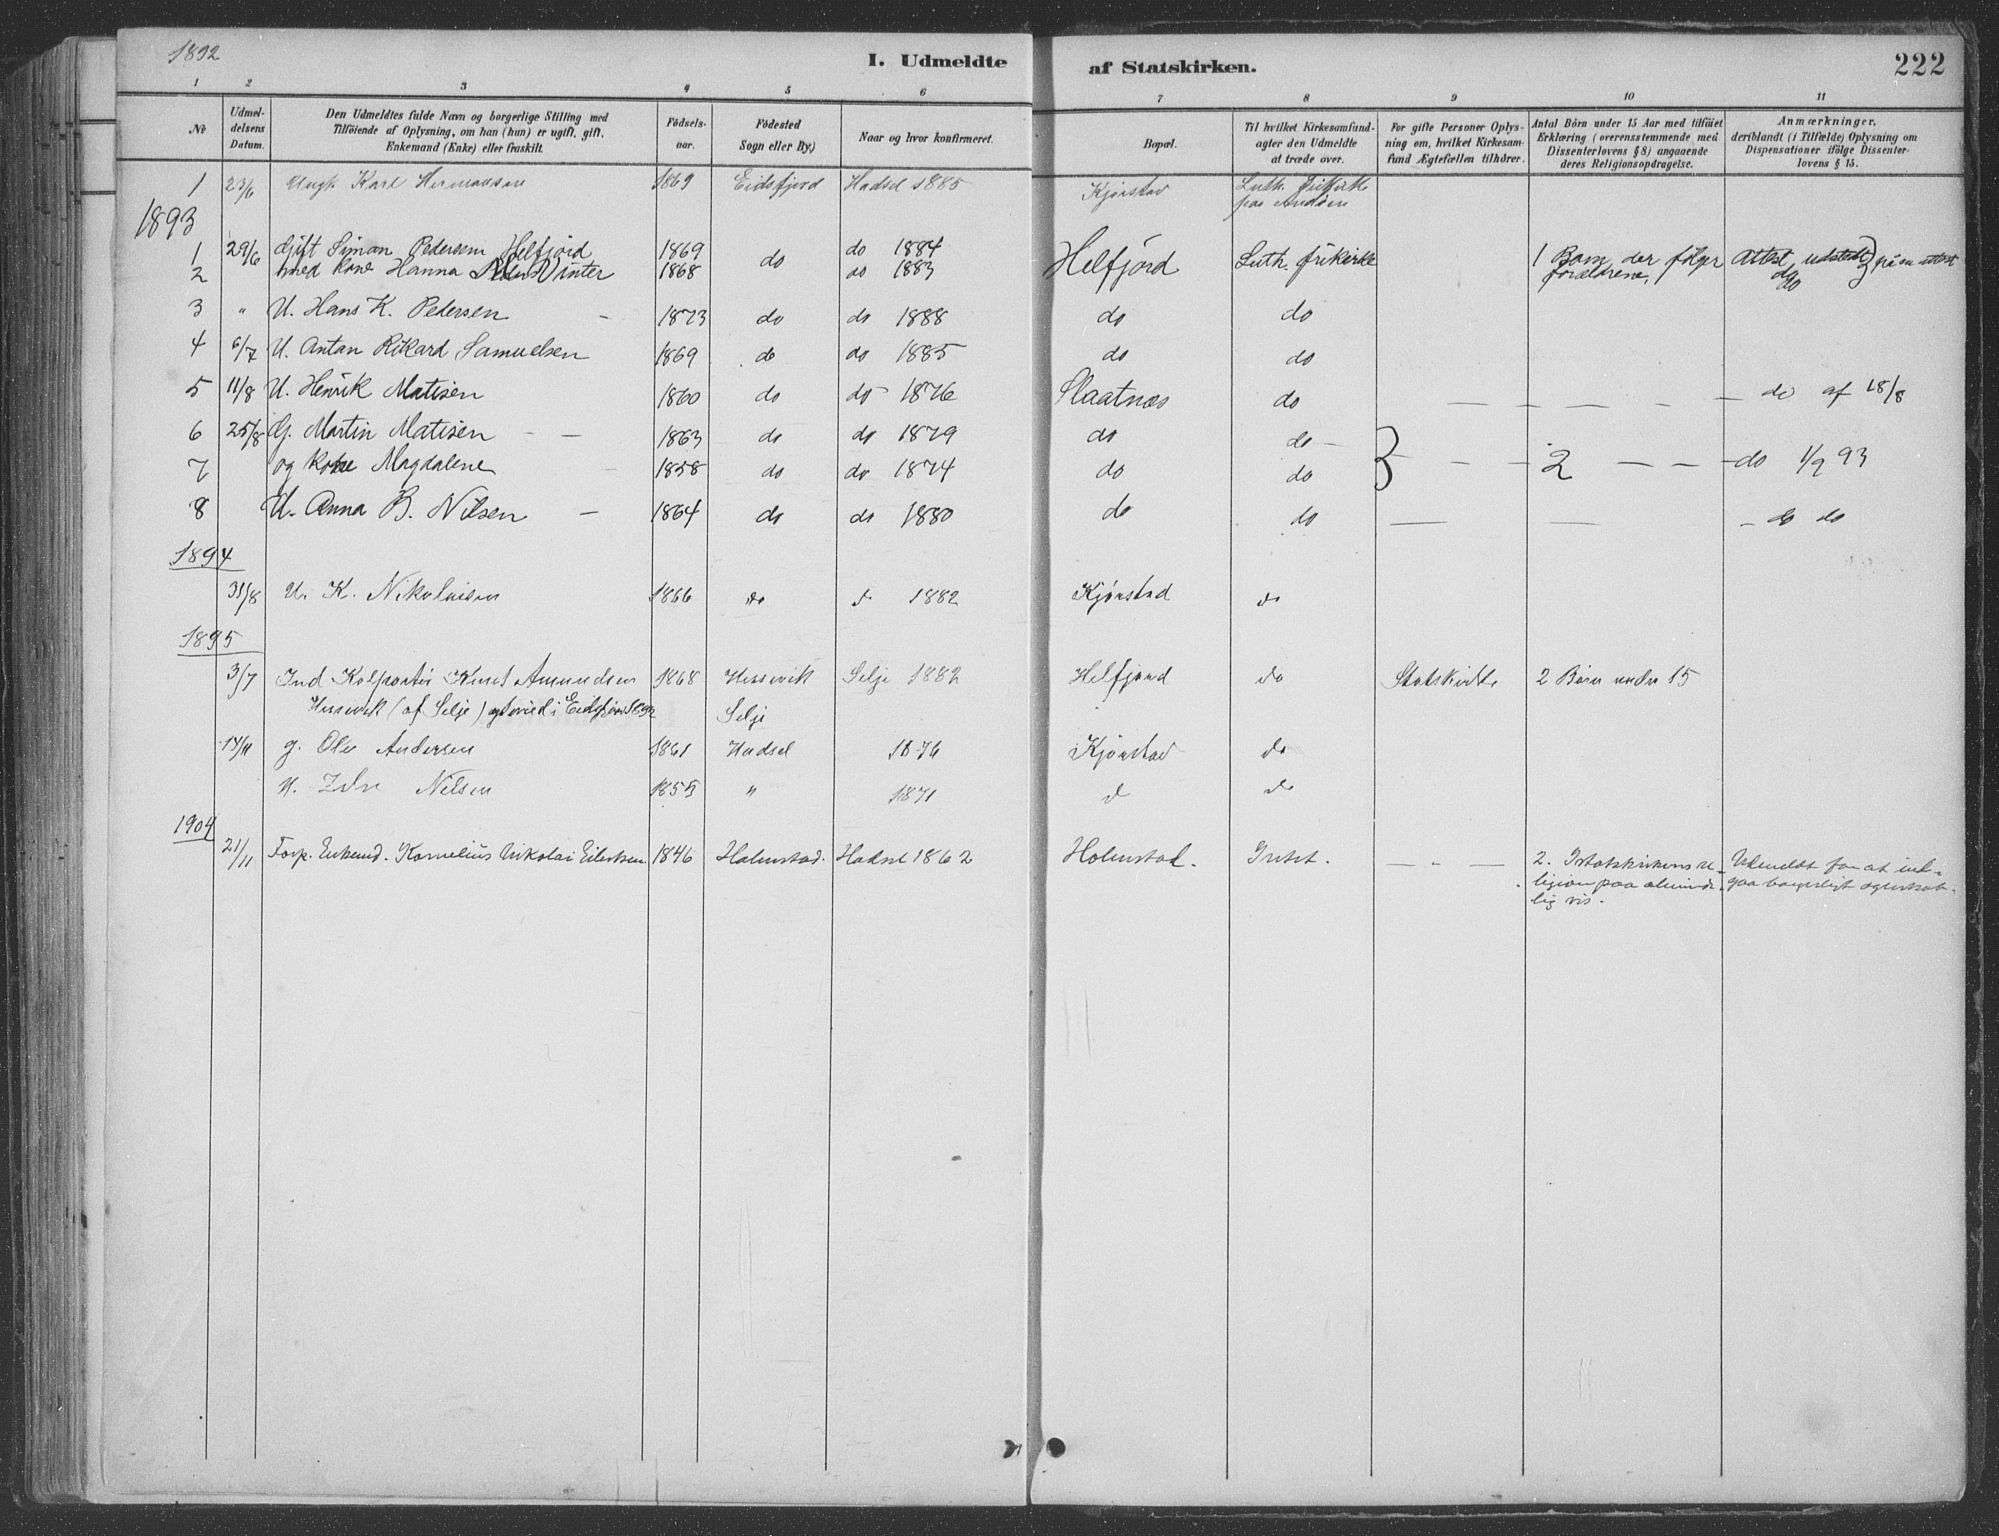 1892
I. Udmeldte af Statskirken.
222
1 2 3 4 5 6 7 8 9 10 11
No
Udmel-
delsens
Datum.
Den Udmeldtes fulde Navn og borgerlige Stilling med
Tilföiende af Oplysning, om han (hun) er ugift, gift,
Enkemand (Enke) eller fraskilt.
Födsels-
aar.
Födested
Sogn eller By.)
Naar og hvor konfirmeret.
Bopæl.
Til hvilket Kirkesamfund-
agter den Udmeldte
at træde over.
For gifte Personer Oplys-
ning om, hvilket Kirkesam-
fund Ægtefællen tilhörer.
Antal Börn under 15 Aar med tilföiet
Erklæring (overensstemmende med
Dissenterlovens § 8) angaaende
deres Religionsopdragelse.
Anmærkninger,
deriblandt (i Tilfælde) Oplysning om
Dispensationer ifölge Dissenter-
lovens § 15.
1 23/6 Karl Hermansen 1869 Eidsfjord Hadsel 1885 Kjørstad Luth. frikirke
paa Andøen
1893
1 29/6 Gift Simon Pedersen Helfjord 1869 do do 1884 Helfjörd Luth. frikirke 1 Barn der følger Attest udstedt på en attest
2 med kone Hanna Winter 1868 do 1883 forældrene, do
3 " U. Hans K. Pedersen 1873 do do 1888 do do
4 6/7 U. Antan Rikard Samuelsen 1869 do do 1885 do do
5 11/8 U. Henrik Matisen 1860 do do 1876 Slaatnæs do — — — — do af 18/8
6 25/8 G. Martin Matisen 1863 do do 1879 do do
7 og kone Magdalene 1858 do do 1874 do do — — — 2 — — — do 1/9 93
8 U. Anna B. Nilsen 1864 do do 1880 do do — — do do
1894
31/8 U. K. Nikolaisen 1866 do do 1882 Kjørstad do
1895
3/7 Ind Kolportør Knut Amundsen 1868 Hessevik Selje 1882 Helfjord do Statskirke 2 Börn under 15
Hessevik (af Selje) i Eidsfjord 1892 Selje
14/11 g. Ole Andersen 1861 Hadsel 1876 Kjørstad do
U. Nilsen 1855 " 1871 d do
1904
21/11 Forp. Enkemd. Kornelius Nikolai Eilertsen 1846 Holmstad. Hadsel 1862 Holmstad. Intet. — " — 2. I statskirkens re- Udmeldt for at ind-
ligion paa alminde- gaa borgerligt ægteskab.
lig vis.